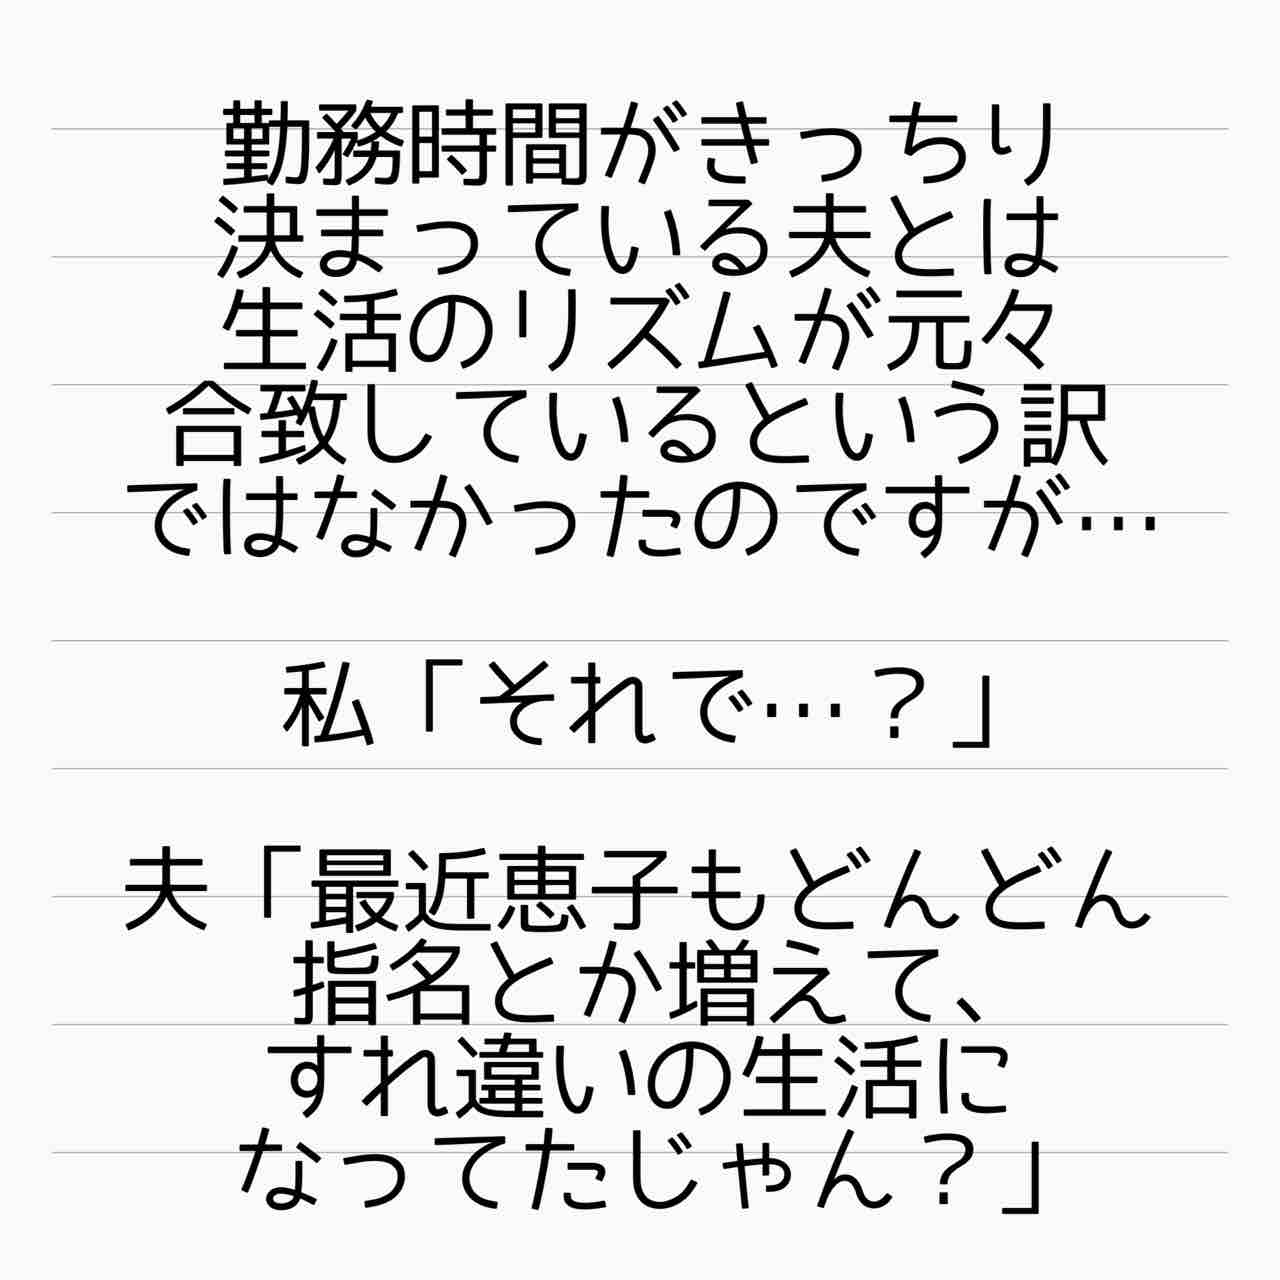 勤務時間がきっちり
決まっている夫とは
生活のリズムが元々
合致しているという訳
ではなかったのですが…
私「それで…？」
夫「最近恵子もどんどん
指名とか増えて、
すれ違いの生活に
なってたじゃん？」